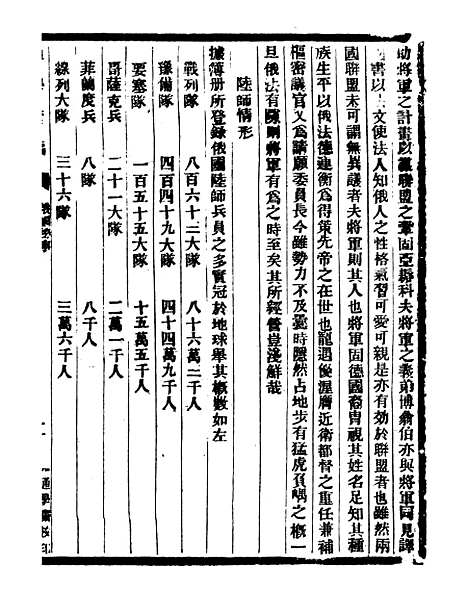 助將軍之計畫以謀聯盟之鞏固亞歷科夫將軍之義弟博翁伯亦與將軍同見譯
書以上文使法人知俄人之性格氣習可愛可親是亦有効於聯盟者也雖然兩
國聯盟未可謂無異議者夫將軍則其人也將軍固德國裔冑視其姓名足知其種
族生平以俄法德連衡為得策先帝之在世也寵遇優渥膺近衛都督之重任兼補
樞密議官又為請願委員長今雖勢力不及曩時隱然占地步有猛虎負嵎之概一
旦俄法有隙則將軍有為之時至矣其所經營豈淺鮮哉
陸師情形
據簿册所登錄俄國陸師兵員之多實冠於地球舉其概數如左
戰列隊 八百六十二大隊 八十六萬二千人
豫備隊 四百四十九大隊 四十四萬九千人
要塞隊 一百五十五大隊 十五萬五千人
哥薩克兵 二十一大隊 二萬一千人
菲蘭度兵 八隊 八千人
線列大隊 三十六隊 三萬六千人